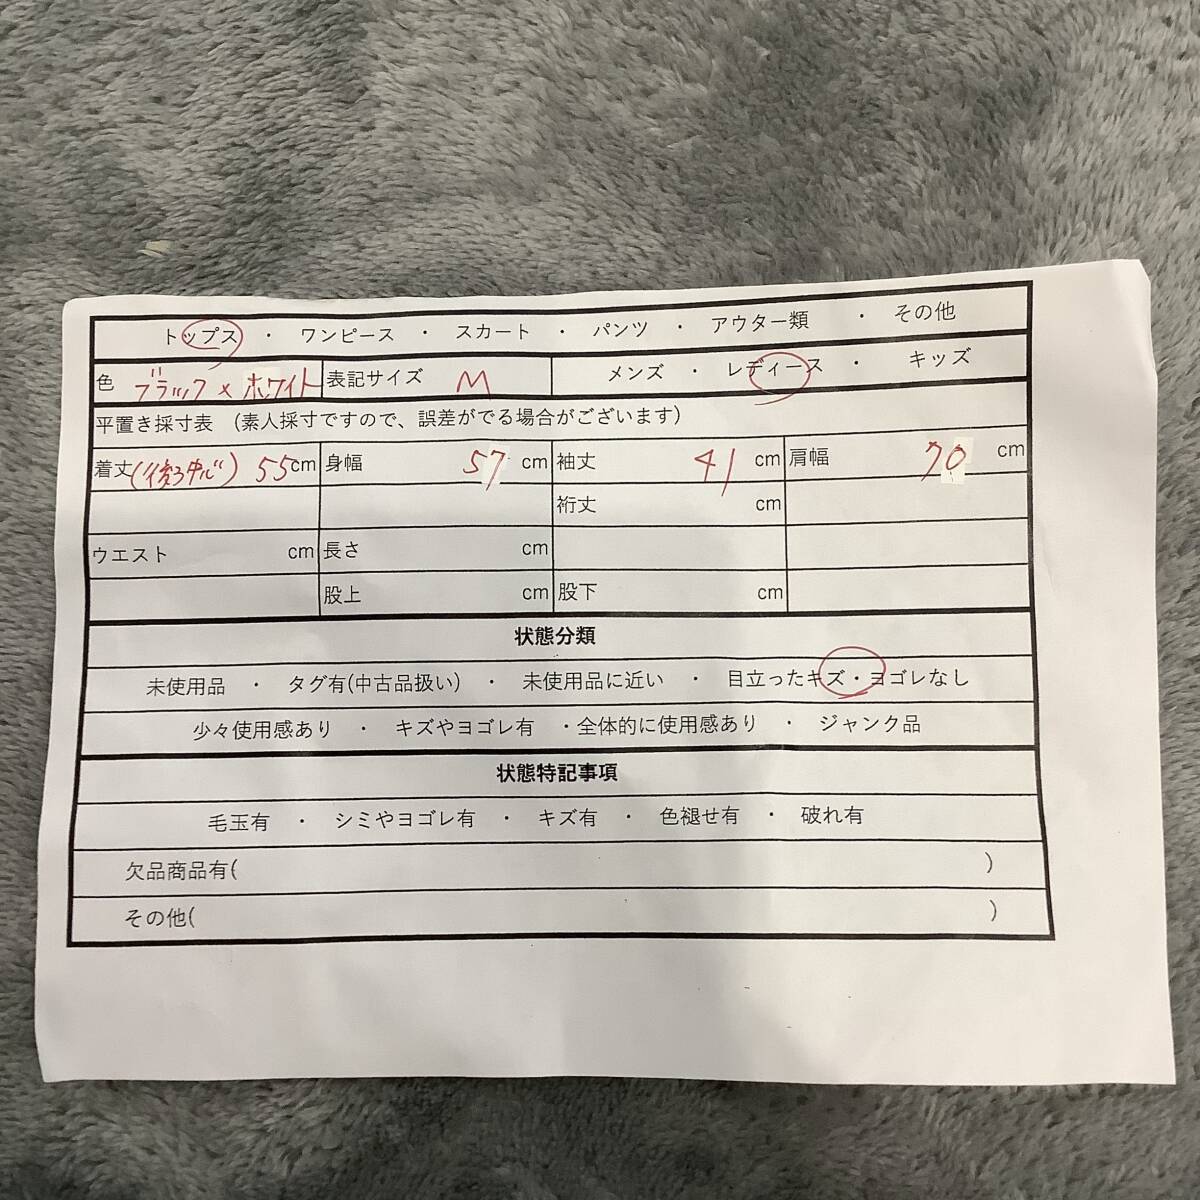 トップス ・ ワンピース ・ スカート ・ パンツ ・ アウター類 ・ その他
色 ブラック×ホワイト 表記サイズ M メンズ ・ レディース ・ キッズ
平置き採寸表 (素人採寸ですので、誤差がでる場合がございます)
着丈(後ろ中心) 55cm 身幅 57 cm 袖丈 41 cm 肩幅 70 cm
裄丈 cm
ウエスト cm 長さ cm
股上 cm 股下 cm
状態分類
未使用品 ・ タグ有(中古品扱い) ・ 未使用品に近い ・ 目立ったキズ・ヨゴレなし
少々使用感あり ・ キズやヨゴレ有 ・全体的に使用感あり ・ ジャンク品
状態特記事項
毛玉有 ・ シミやヨゴレ有 ・ キズ有 ・ 色褪せ有 ・ 破れ有
欠品商品有( )
その他( )